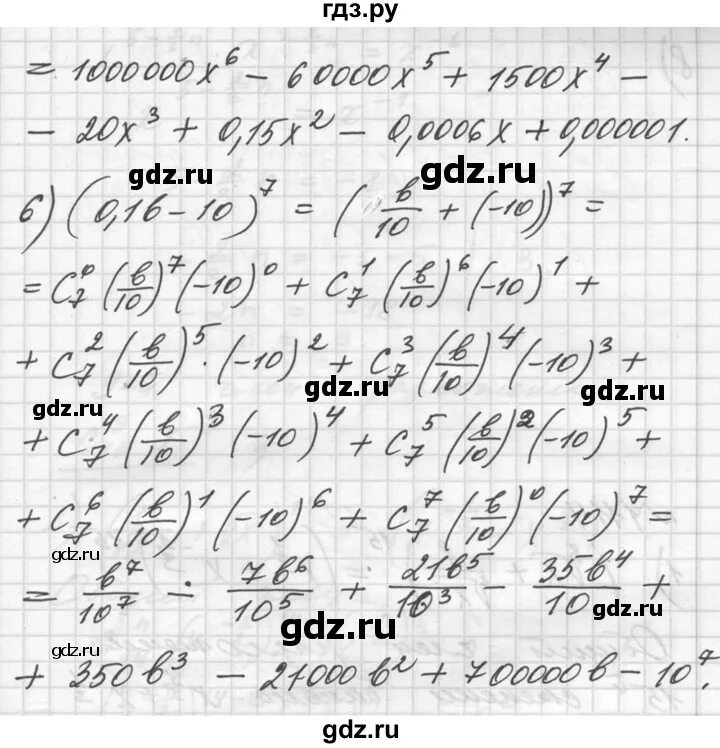 гдз.ру
= 1000000x⁶ − 60000x⁵ + 1500x⁴ −
− 20x³ + 0,15x² − 0,0006x + 0,000001.
gdz.ru gdz.ru
6) (0,1в − 10)⁷ = (в/10 + (−10))⁷ =
= C₇⁰ (в/10)⁷ (−10)⁰ + C₇¹ (в/10)⁶ (−10)¹ +
+ C₇² (в/10)⁵ · (−10)² + C₇³ (в/10)⁴ (−10)³ +
gdz.ru gdz.ru gdz.ru
+ C₇⁴ (в/10)³ (−10)⁴ + C₇⁵ (в/10)² (−10)⁵ +
+ C₇⁶ (в/10)¹ (−10)⁶ + C₇⁷ (в/10)⁰ (−10)⁷ =
gdz.ru gdz.ru
= в⁷/10⁷ − 7в⁶/10⁵ + 21в⁵/10³ − 35в⁴/10 +
gdz.ru gdz.ru
gdz.ru gdz.ru
+ 350в³ − 21000в² + 700000в − 10⁷.
gdz.ru